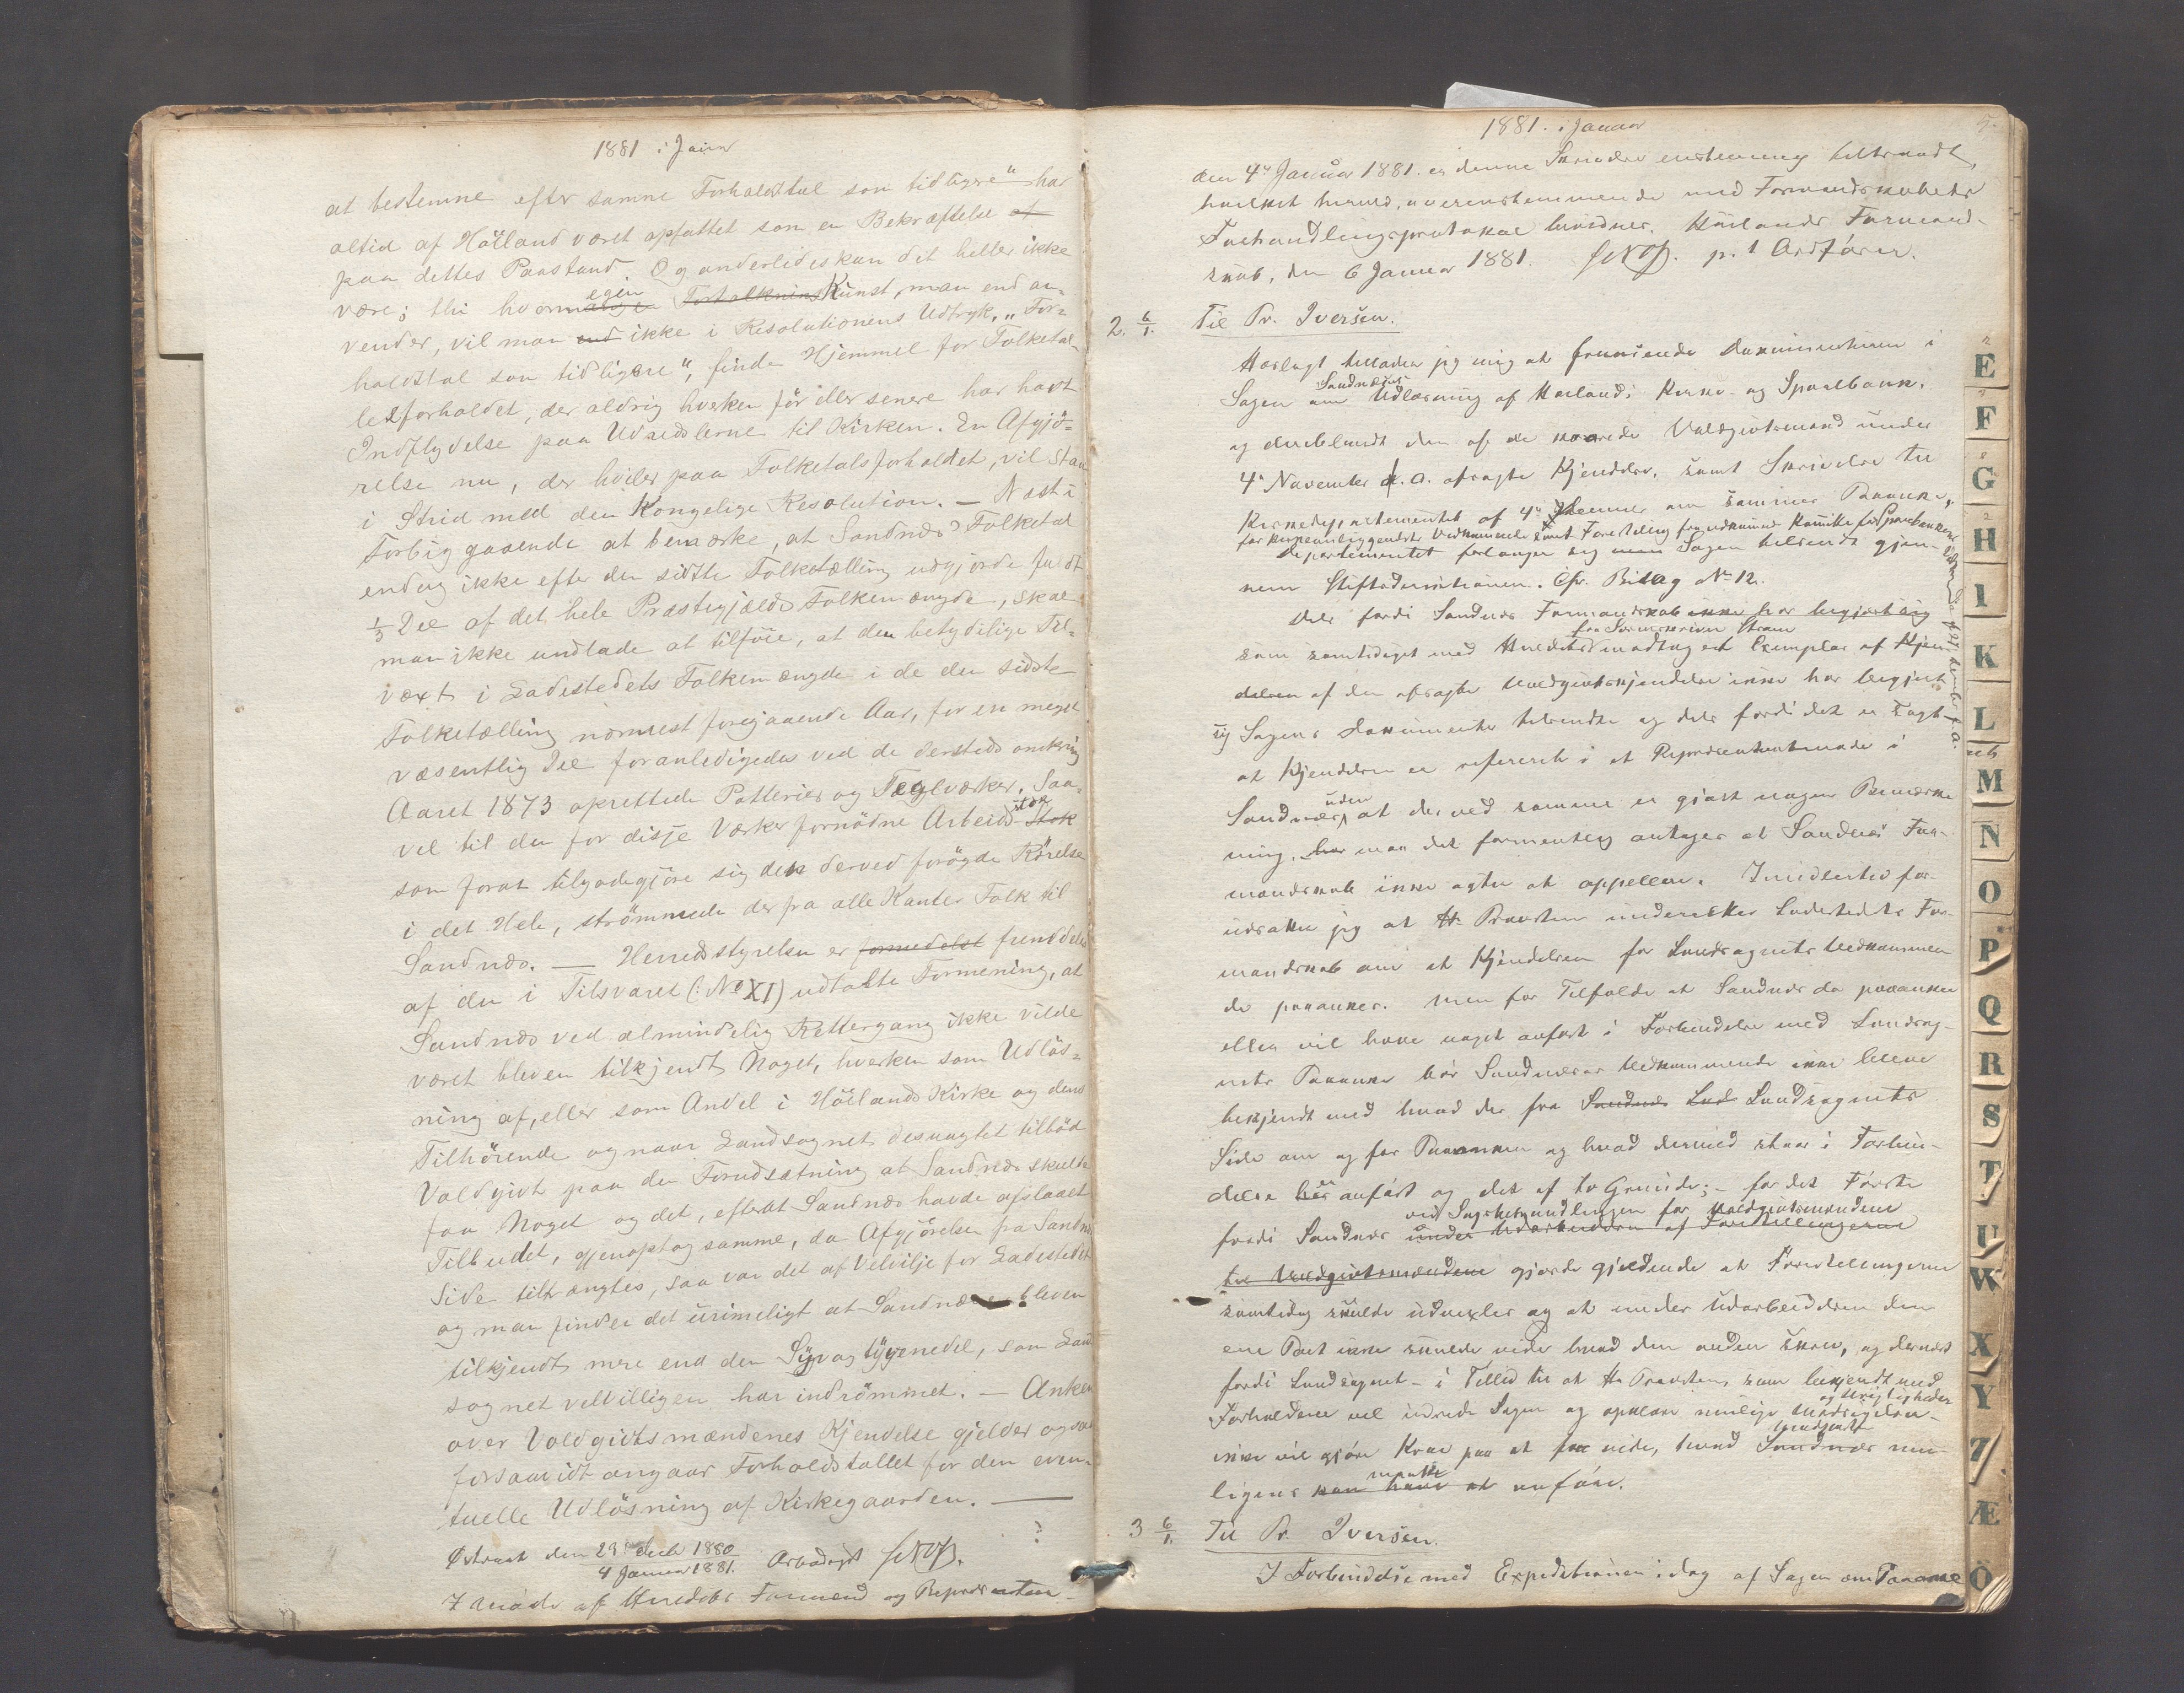 1881 i Januar
at bestemme efter samme Forholdstal som tidligere" har
altid af Höiland været opfattet som en Bekræftelse at
paa dettes Paastand. Og anderledes kan det heller ikke
være; thi hvor megen egen Fortolknins Kunst, man end an-
vender, vil man end ikke i Resolutionens Udtryk, "For-
holdstal som tidligere", finde Hjemmel for Folketal-
letsforholdet, der aldrig hverken för eller senere har havt
Indflydelse paa Udredslerne til Kirken. En Afgjö-
relse nu, der hviler paa Folketalsforholdet, vil staa
i Strid med den Kongelige Resolution. — Næst i
Forbiggaaende at bemærke, at Sandnæs's Folketal
endog ikke efter den sidste Folketælling udgjorde fuldt
1/3 Del af det hele Præstegjælds Folkemængde, skal
man ikke undlade at tilföie, at den betydelige Til-
vext i Ladestedets Folkemængde i de den sidste
Folketælling nærmest foregaaende Aar, for en meget
væsentlig Del foranledigedes ved de dersteds omkring
Aaret 1873 oprettede Potterier og Teglværker. Saa-
vel til den for disse Værker fornödne Arbeids Stok stok
som forat tilgodegjöre sig den derved forögde Rörelse
i det Hele, strömmede der fra alle Kanter Folk til
Sandnæs. — Herredsstyrelsen er formedelst fremdeles
af den i Tilsvaret (: No XI) udtalte Formening, at
Sandnæs ved almindelig Rettergang ikke vilde
været bleven tilkjendt Noget, hverken som Udlös-
ning af, eller som Andel i Höilands Kirke og dens
Tilhörende og naar Landsognet desuagtet tilböd
Voldgivt paa den Forudsætning at Sandnæs skulde
faa Noget og det, efterat Sandnæs havde afslaaet
Tilbudet, gjenoptog samme, da Afgjörelse fra Sandnæs
Side tiltrængtes, saa var det af Velvilje for Ladestedet
og man finder det urimeligt at Sandnæs er bleven
tilkjendt mere end den Syv og tyvendedel, som Land-
sognet velvilligen har indrömmet. — Anken
over Voldgivtsmændenes Kjendelse gjelder ogsaa
forsaavidt angaar Forholdstallet for den even-
tuelle Udlösning af Kirkegaarden. —
Östraat den 29 Decb 1880
4 Januar 1881.
I Möde af Herredets Formænd og Repræsentan-
1881. i Januar
5.
den 4de Januar 1881. er denne Skrivelse enstemmig tiltraadt,
hvilket herved, overenstemmende med Formandskabets
Forhandlingsprotokol bevidnes. Höilands Formand-
skab, den 6 Januar 1881. p. t. Ordförer.
2. 6/1. Til Pr. Iversen.
Hoslagt tillader jeg mig at fremsende Dokumenterne i
Sagen om Sandnæses Udlösning af Höilands Kirke- og Sparebank,
og deriblandt den af de kaarede Voldgivtsmænd under
4de November d. a. afsagte Kjendelse, samt Skrivelse til
Kirkedepartementet af 4de Januar om sammes Paaanke,
Departementet forlanger sig Sagen tilsendt gjen-
nem Stiftsdirektionen. Cfr. Bilag No 12.
Dels fordi Sandnæs Formandskab ikke har begjært sig
som samtidigt med Herredets fra Sorenskriver Strøm modtog et Exemplar af Kjen-
delsen af den afsagte Voldgivtskjendelse ikke har begjært
sig Sagens Dokumenter tilsendte og dels fordi det er sagt
at Kjendelsen er refereret i et Repræsentantmøde i
Sandnæs, uden at der ved samme er gjort nogen Bemærk-
ning, har man det formentlig antages at Sandnæs For-
mandskab ikke agter at appellere. Imidlertid for-
udsætter jeg at Hr Provsten underretter Ladestedets For-
mandskab om at Kjendelsen for Landsognets Vedkommen-
de paaankes. Men for Tilfælde at Sandnæs da paaanker
eller vil have noget anført i Forbindelse med Landsog-
nets Paaanke bör Sandnæs's Vedkommende ikke blive
bekjendt med hvad der fra Sandnæs Lad Landsognets
Side om og for Paaanken og hvad dermed staar i Forbin-
delse her er anfört og det af to Grunde; — for det Første
fordi Sandnæs under Udarbeidelsen af Forestillingerne ved Sagsbehandlingen for Voldgivtsmændene
til Voldgivtsmændene gjorde gjældende at Forestillingerne
samtidig skulde udvexles og at under Udarbeidelsen den
ene Part ikke skulde vide hvad den anden skrev, og dernæst
fordi Landsognet — i Tillid til at Hr Provsten, som bekjendt med
Forholdene vil udrede Sagen og opklare mulige Modsigelser og Urigtigheder —
ikke vil gjöre Krav paa at faa vide, hvad Sandnæs modpart mu-
ligens kan have at maatte anföre.
3 6/1. Til Pr. Iversen.
I Forbindelse med Expeditionen i dag af Sagen om Paaanke
E
F
G
H
I
K
L
M
N
O
P
Q
R
S
T
U
W
X
Y
Z
Æ
Ö